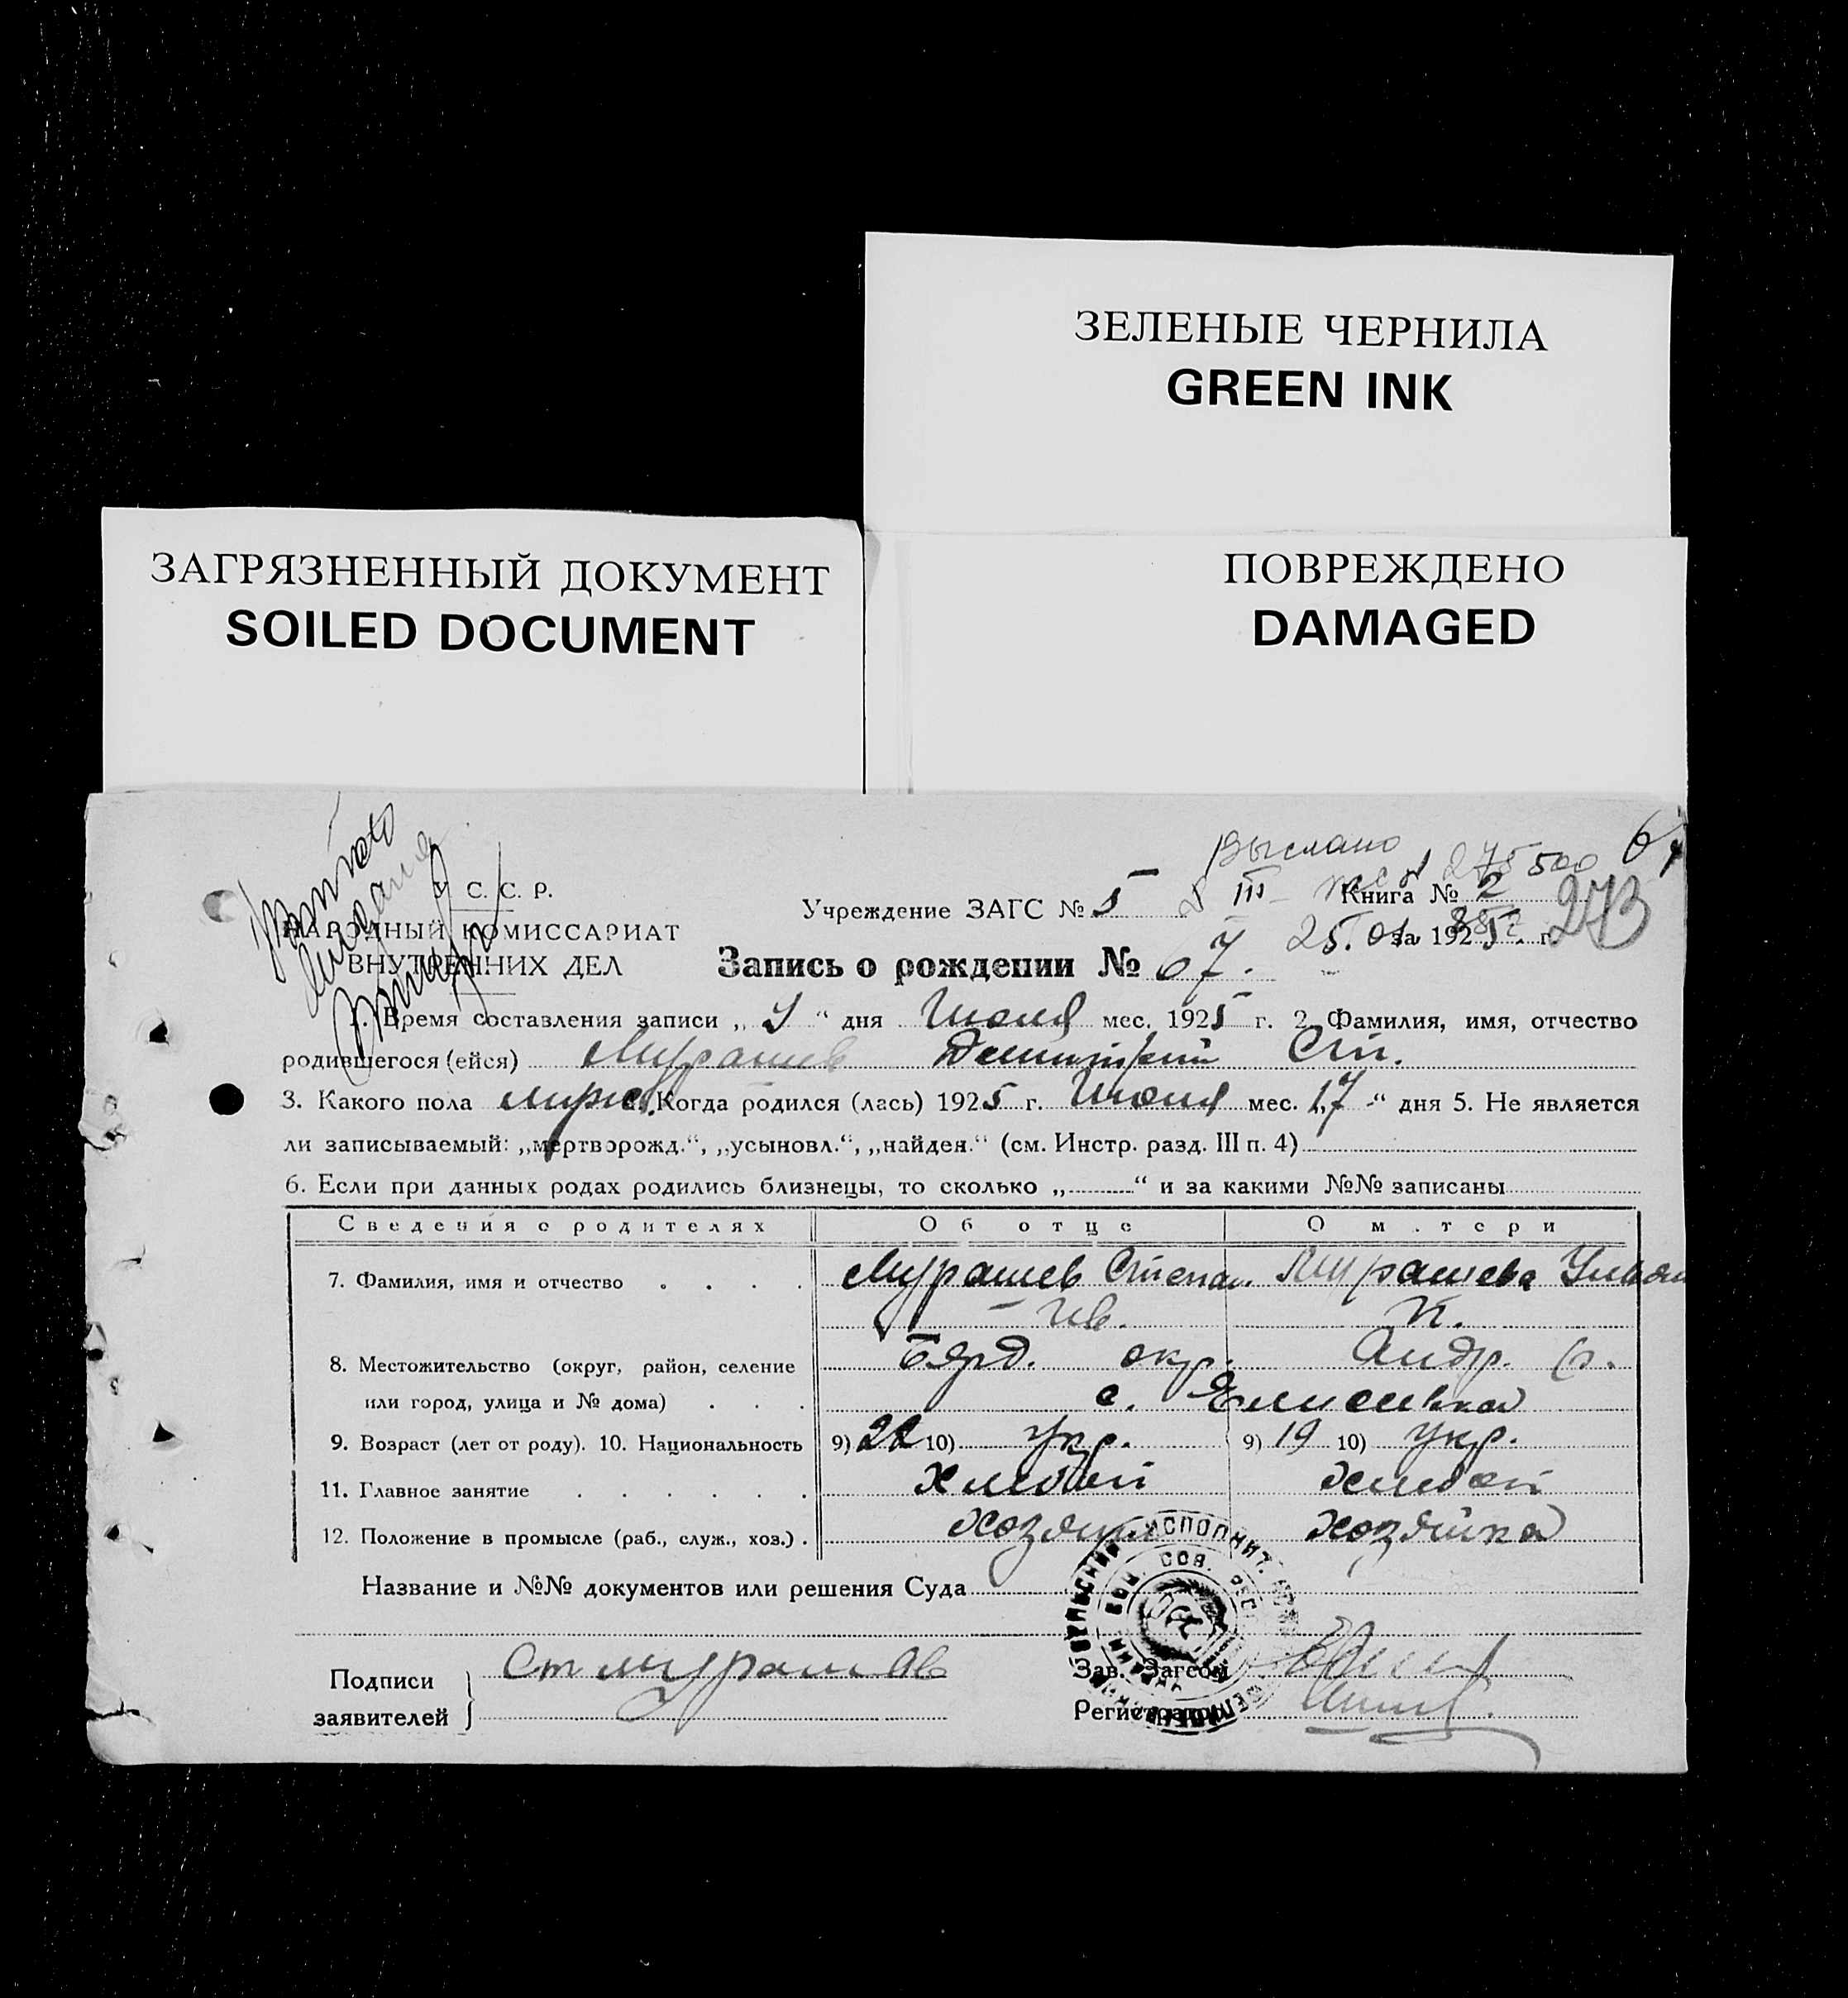 ЗЕЛЕНЫЕ ЧЕРНИЛА
GREEN INK
ЗАГРЯЗНЕННЫЙ ДОКУМЕНТ
SOILED DOCUMENT
ПОВРЕЖДЕНО
DAMAGED
Выслано
У. С. С. Р.
НАРОДНЫЙ КОМИССАРИАТ
ВНУТРЕННИХ ДЕЛ
Учреждение ЗАГС № 5
Книга № 2
за 1925 г.
273
Запись о рождении № 67.
1. Время составления записи „ “ дня Июля мес. 1925 г. 2. Фамилия, имя, отчество
родившегося (ейся) Мурашев Димитрий Ст.
3. Какого пола мужс. Когда родился (лась) 1925 г. Июня мес. „17“ дня 5. Не является
ли записываемый: „мертворожд.“, „усыновл.“, „найден.“ (см. Инстр. разд. III п. 4)
6. Если при данных родах родились близнецы, то сколько „ “ и за какими №№ записаны
Сведения о родителях Об отце О матери
7. Фамилия, имя и отчество Мурашев Степан Мурашева Ульян
Ив. К.
8. Местожительство (округ, район, селение Бярд. окр. Андр. р.
или город, улица и № дома) с. Елисеевка
9. Возраст (лет от роду). 10. Национальность 9) 22 10) Укр. 9) 19 10) Укр.
11. Главное занятие Хлебоп Хлебоп
12. Положение в промысле (раб., служ., хоз.) Хозяин Хозяйка
Название и №№ документов или решения Суда
Подписи
заявителей
Ст Мурашов
Зав. Загсом
Регистратор